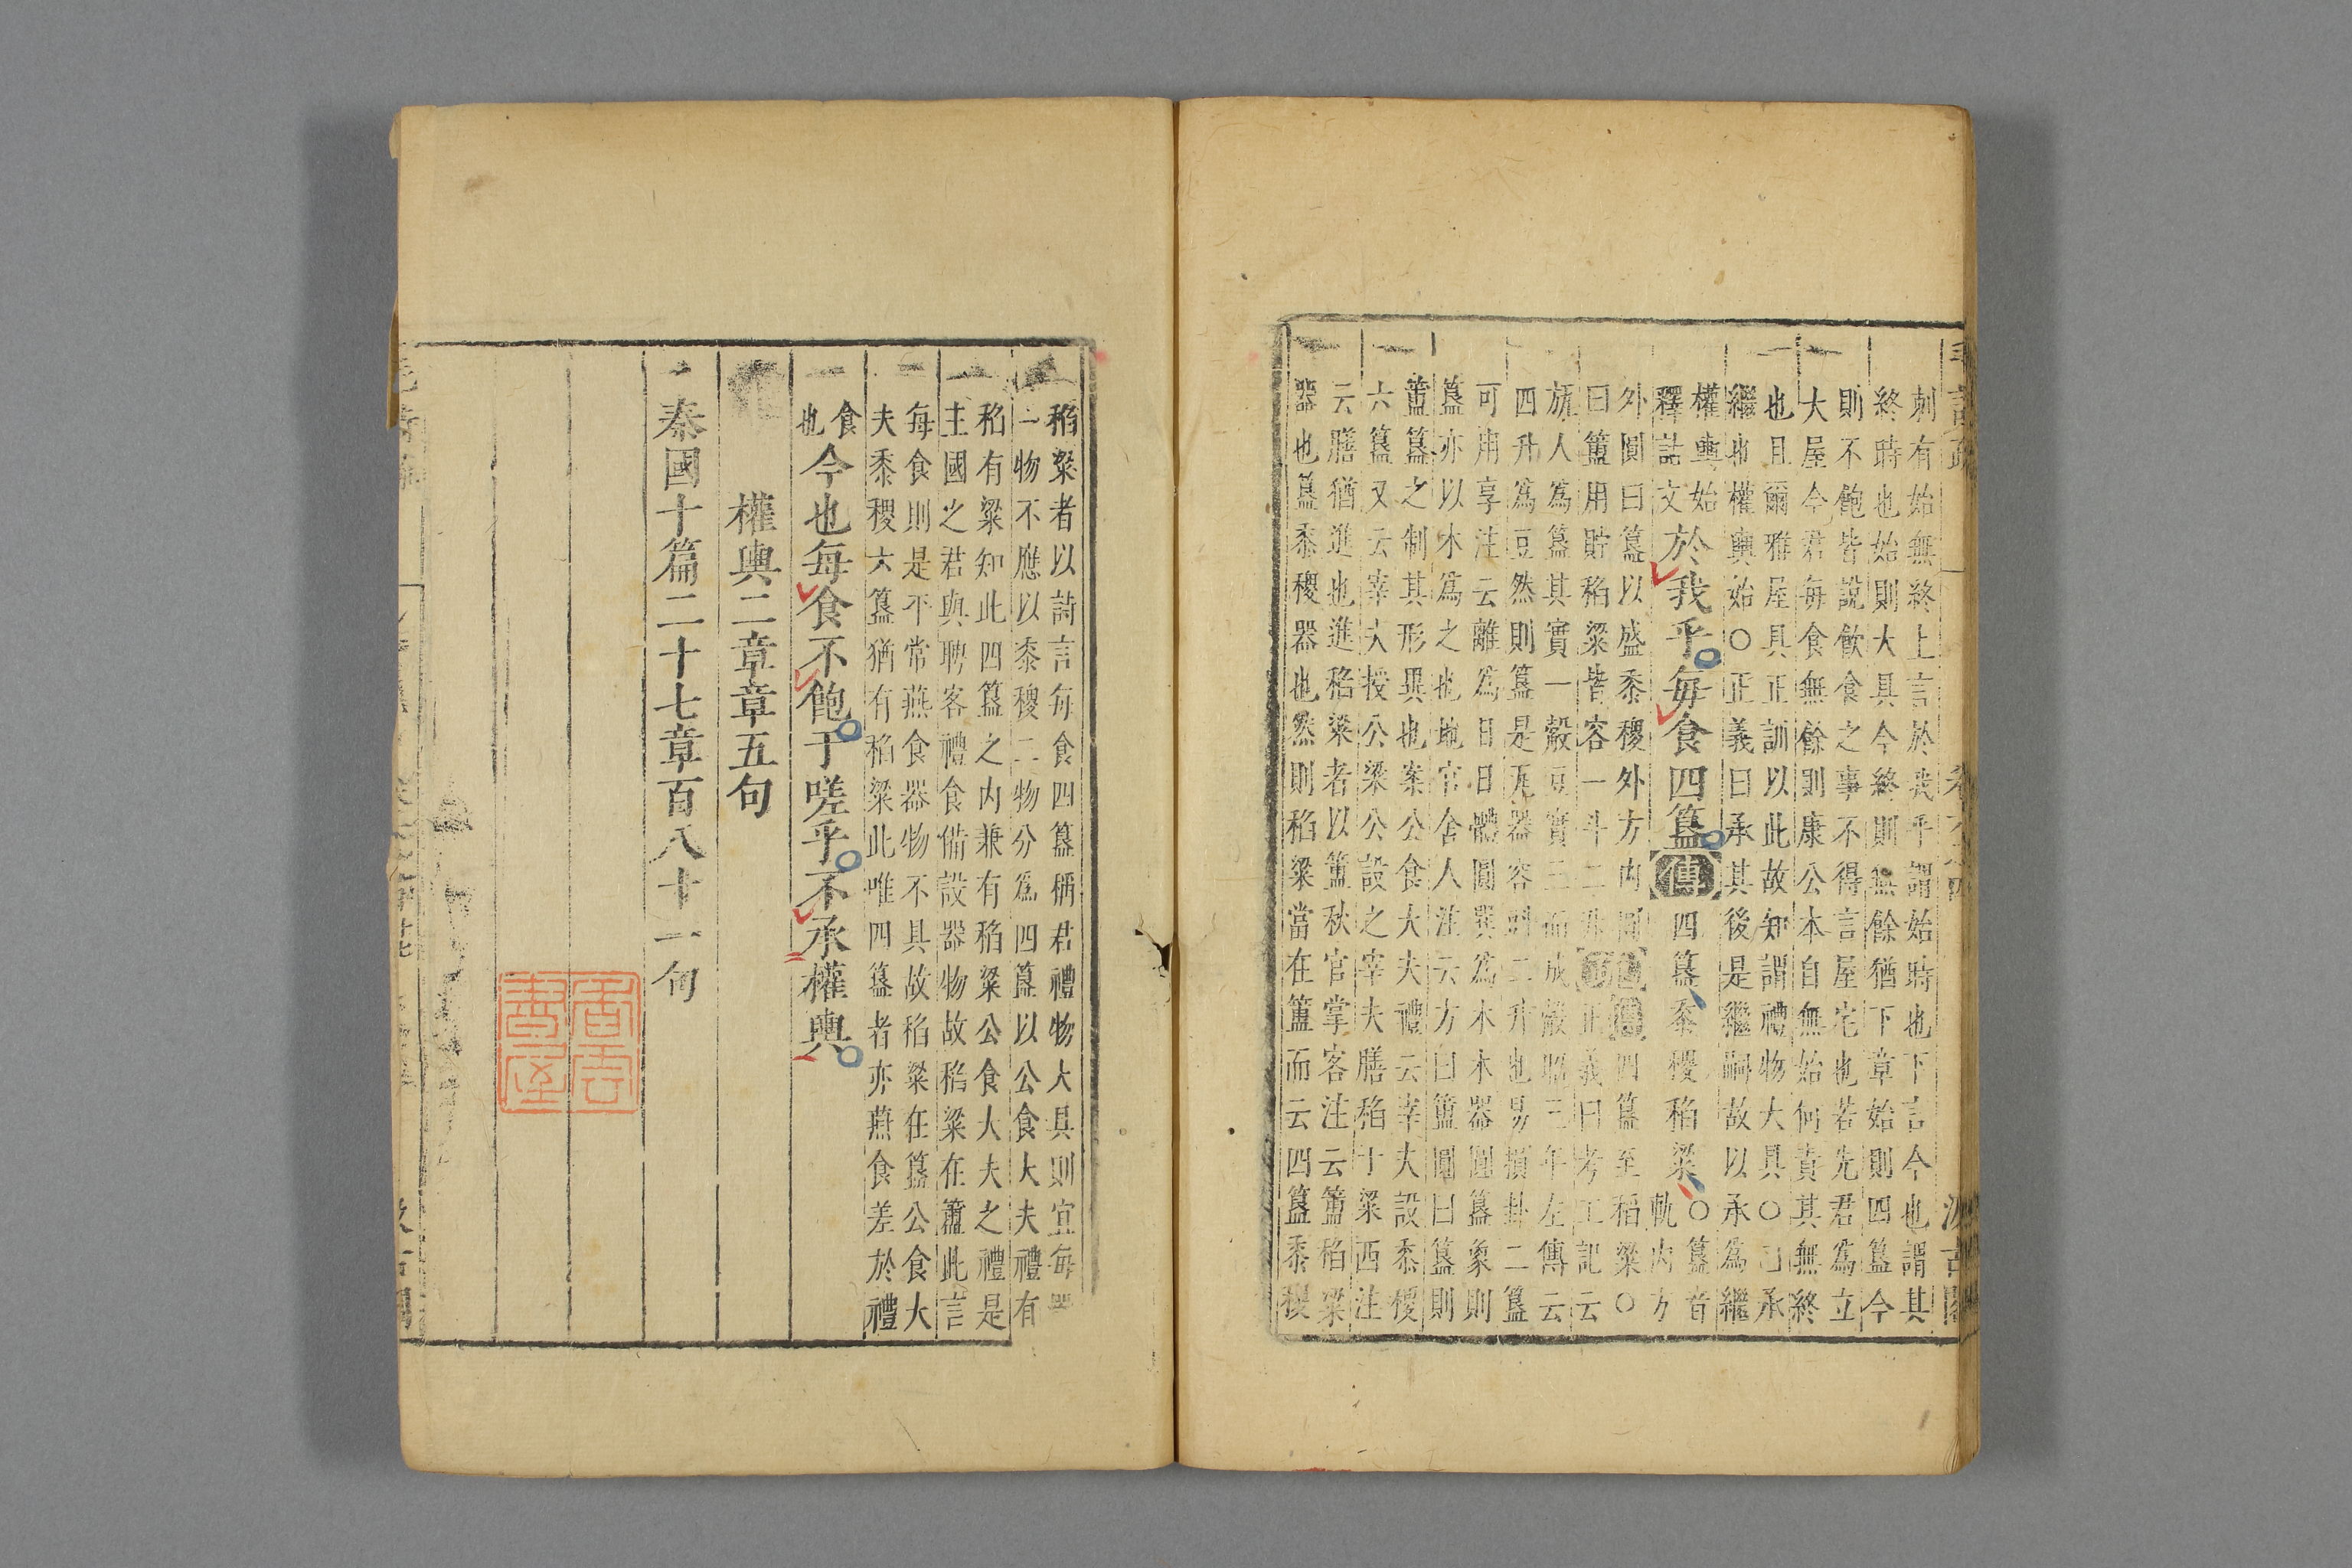 刺有始無終上言於我乎謂始時也下言今也謂其
終時也始則大具今終則無餘猶下章始則四簋今
則不飽皆說飲食之事不得言屋宅也若先君爲立
大屋今君每食無餘則康公本自無始何責其無終
也且爾雅屋具正訓以此故知謂禮物大具○
繼也權輿始○正義曰承其後是繼嗣故以承爲繼
權輿始
釋詁文
於我乎每食四簋傳四簋黍稷稻梁○
簋音
軌內方
外圓曰簋以盛黍稷外方內圓
曰簠用貯稻梁皆容一斗二升
四簋至稻梁○
正義曰考工記云
旊人爲簋其實一觳豆實三而成觳昭三年左傳云
四升爲豆然則簋是瓦器容斗二升也易損卦二簋
可用享注云離爲日日體圓巽爲木木器圓簋象則
簋亦以木爲之也地官舍人注云方曰簠圓曰簋則
簠簋之制其形異也案公食大夫禮云宰夫設黍稷
六簋又云宰夫授公梁公設之宰夫膳稻于梁西注
云膳猶進也進稻梁者以簠秋官掌客注云簠稻梁
器也簋黍稷器也然則稻梁當在簠而云四簋黍稷
稻梁者以詩言每食四簋稱君禮物大具則宜每
二物不應以黍稷二物分爲四簋以公食大夫禮有
稻有梁知此四簋之内兼有稻梁公食大夫之禮是
主國之君與聘客禮食備設器物故稻梁在簠此言
每食則是平常燕食器物不具故稻梁在簋公食大
夫黍稷六簋猶有稻梁此唯四簋者亦燕食差於禮
食
也
今也每食不飽于嗟乎不承權輿
權輿二章章五句
秦國十篇二十七章百八十一句